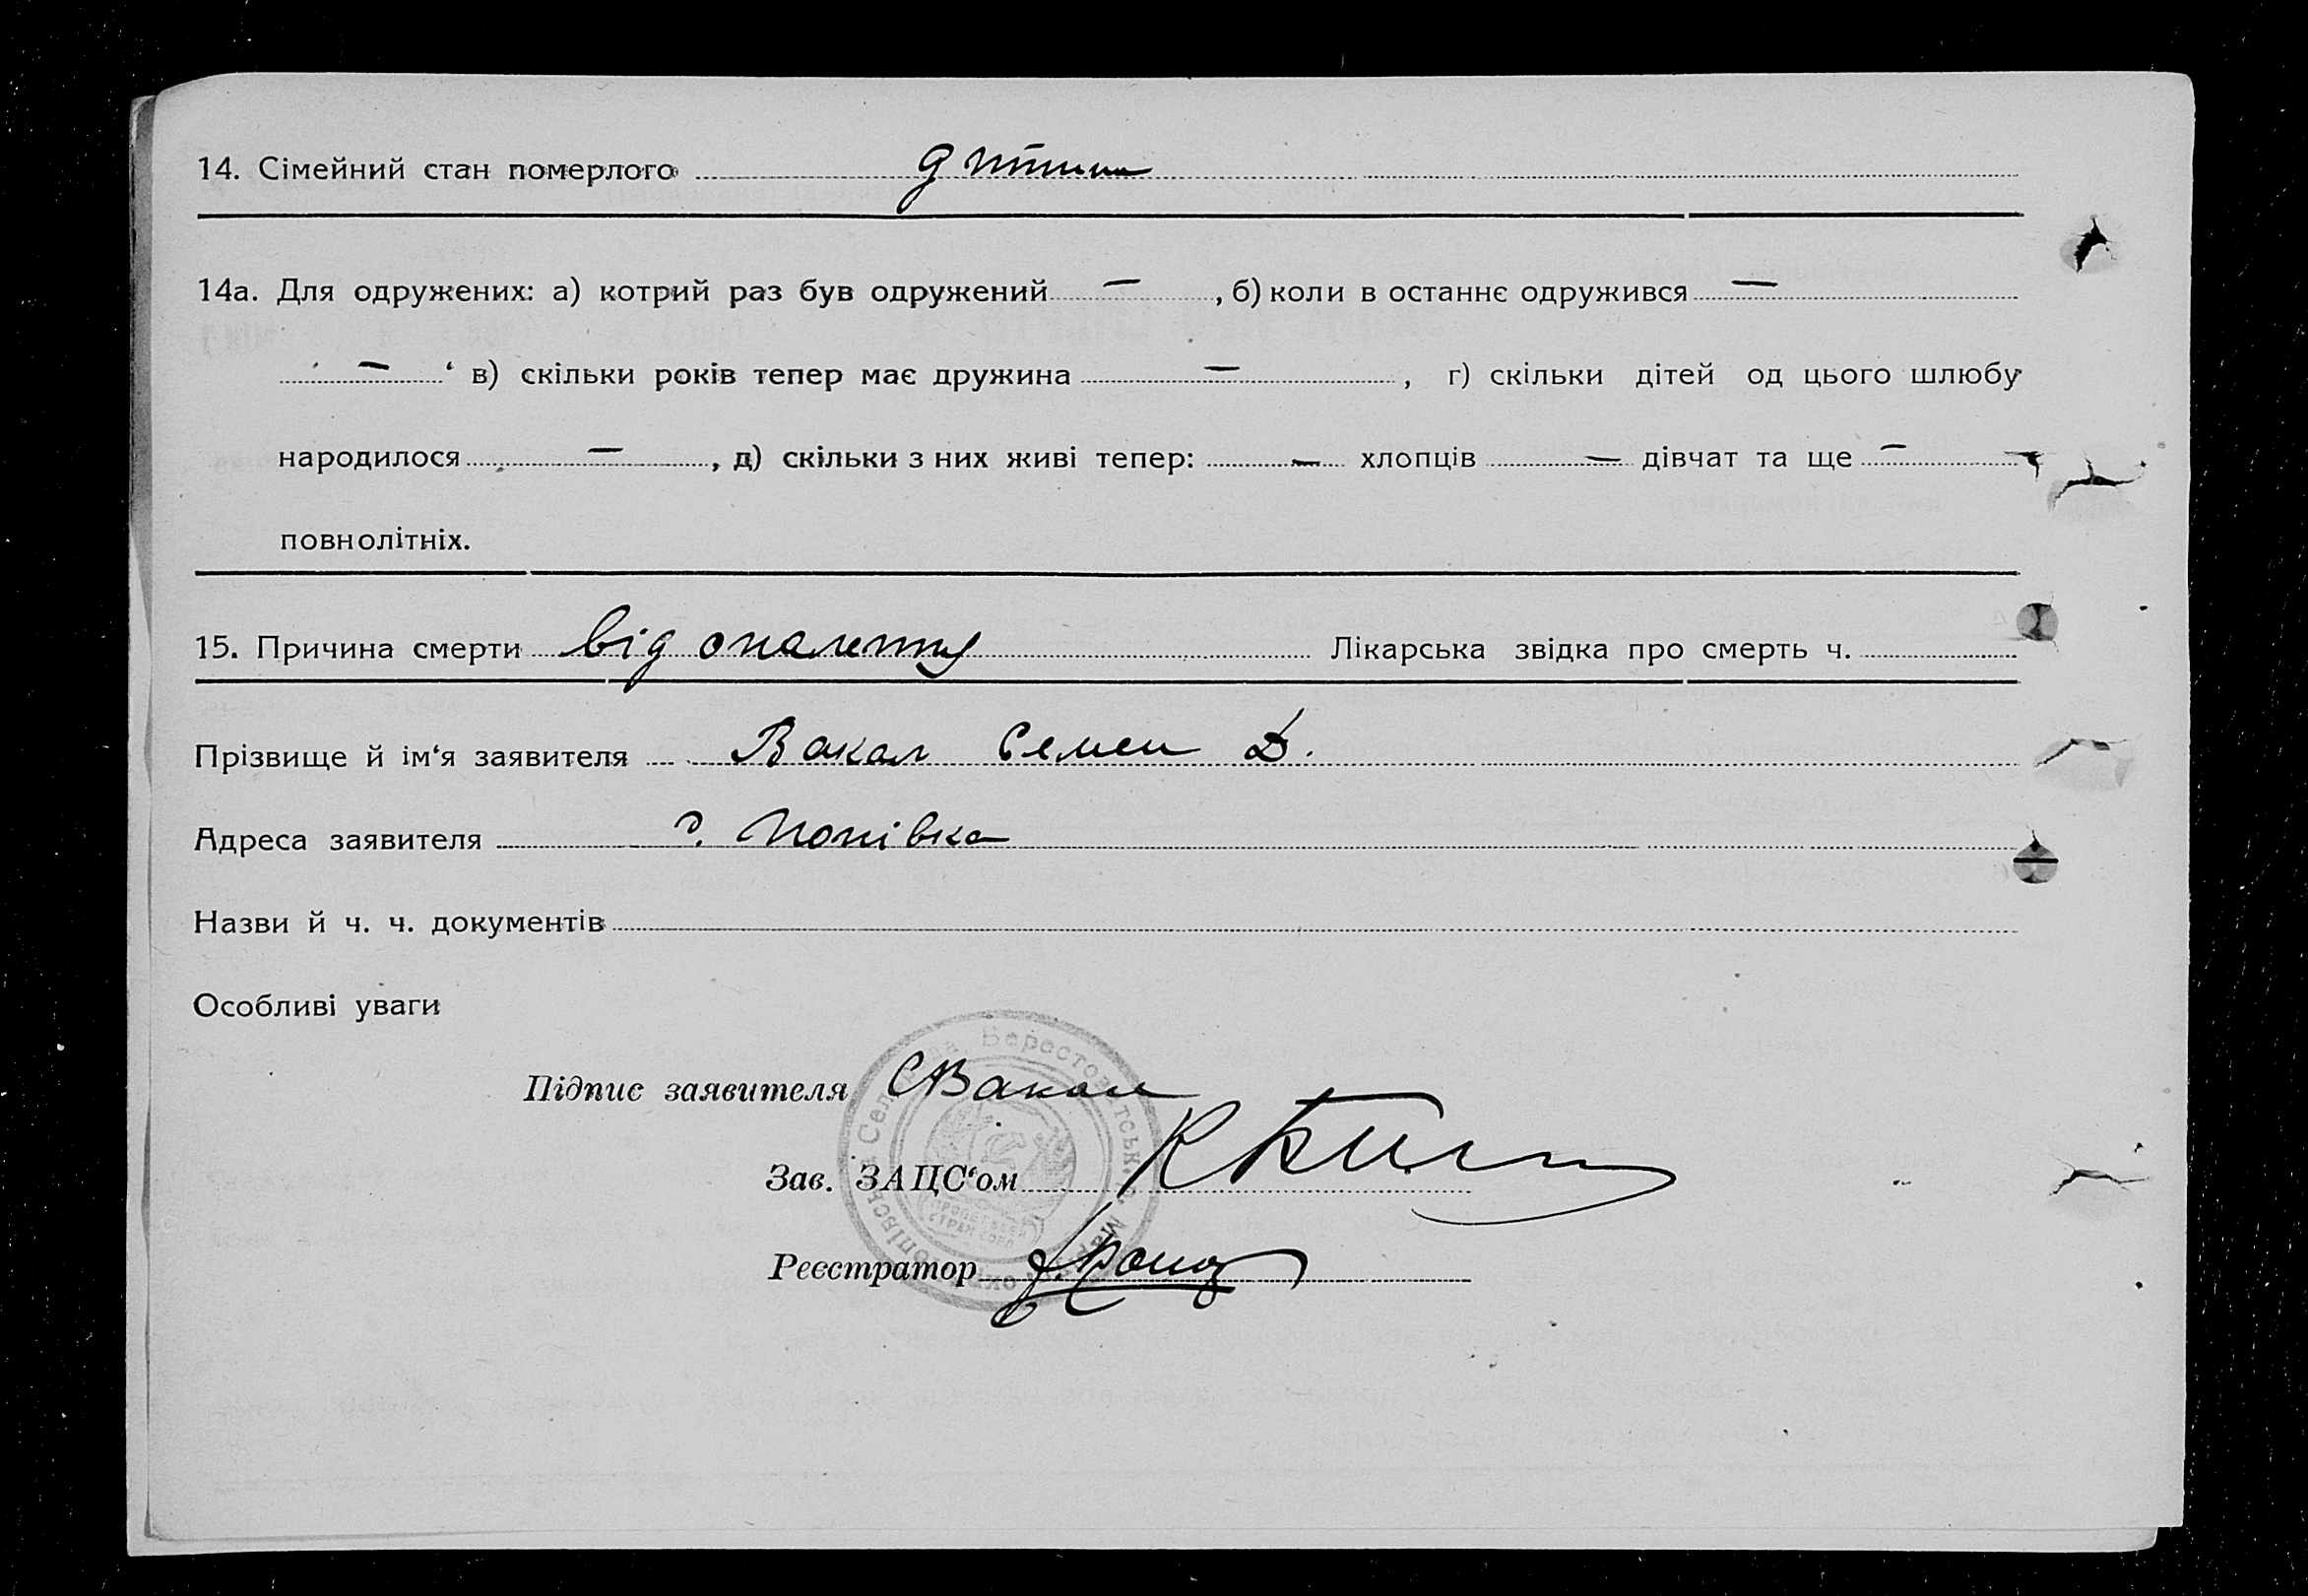 14. Сімейний стан померлого дитина
14а. Для одружених: а) котрий раз був одружений — , б) коли в останнє одружився —
— ‘ в) скільки років тепер має дружина — , г) скільки дітей од цього шлюбу
народилося — , д) скільки з них живі тепер: — хлопців — дівчат та ще —
повнолітніх.
15. Причина смерти від Лікарська звідка про смерть ч.
Прізвище й ім‘я заявителя Вакал Семен Д.
Адреса заявителя Попівка
Назви й ч. ч. документів
Особливі уваги
Підпис заявителя СВакал
Зав. ЗАЦС‘ом
Реєстратор